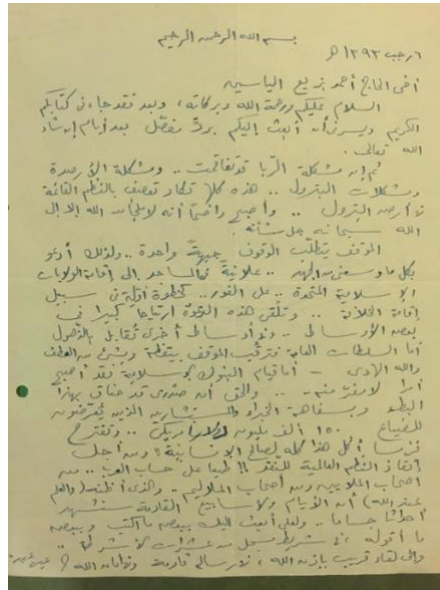 بسم الله الرحمن الرحيم
٦ رجب ١٣٩٣ هـ
أخي الحاج أحمد بزيع الياسين
السلام عليكم ورحمة الله وبركاته، وبعد فقد جاءني كتابكم
الكريم ويسرني أن أبعث إليكم برد مفصل بعد أيام إن شاء
الله تعالى.
ثم إن مشكلة الربا قد تفاقمت .. ومشكلة الأرصدة
ومشكلات البترول .. هذه كلها تكاد تعصف بالنظم القائمة
في أرض البترول .. وأصبح واضحا أنه لا ملجأ من الله إلا إلى
الله سبحانه جل شأنه.
الموقف يتطلب الوقوف جبهة واحدة .. ولذلك أدعو
بكل ما وسعني من الجهر .. علانية في المساجد إلى إقامة الولايات
الإسلامية المتحدة .. على الفور .. كخطوة أولى في سبيل
إقامة الخلافة .. وتلقى هذه الدعوة ارتياحا كبيرا في
بعض الأوساط .. وفي أوساط أخرى تقابل بالذهول
أما السلطات العامة فترقب الموقف بيقظة وشيء من العطف
والله الهادي - أما قيام البنوك الإسلامية فقد أصبح
أمرا لا مفر منه .. والحق أن صدري قد ضاق بهذا
البطء وبسفاهة الخبراء والمستشارين الذين يعرضون
للضياع ١٥٠ ألف مليون دولار أمريكي .. وتقترح
فرنسا أكل هذا كله لصالح الإنسانية "ومن أجل
إنقاذ النظم العالمية للنقد" !! طبعا على حساب العرب .. من
أصحاب الملايين ومن أصحاب الملاليم .. والذي أظنه (والعلم
عند الله) أن الأيام والأسابيع القادمة ستشهد
أحداثا جساما .. ولعلي أبعث إليك ببعض ما أكتب وببعض
ما أقوله في شريط مسجل من عشرات الأشرطة ..
وإلى لقاء قريب بإذن الله، في رسالة قادمة وفي أمان الله